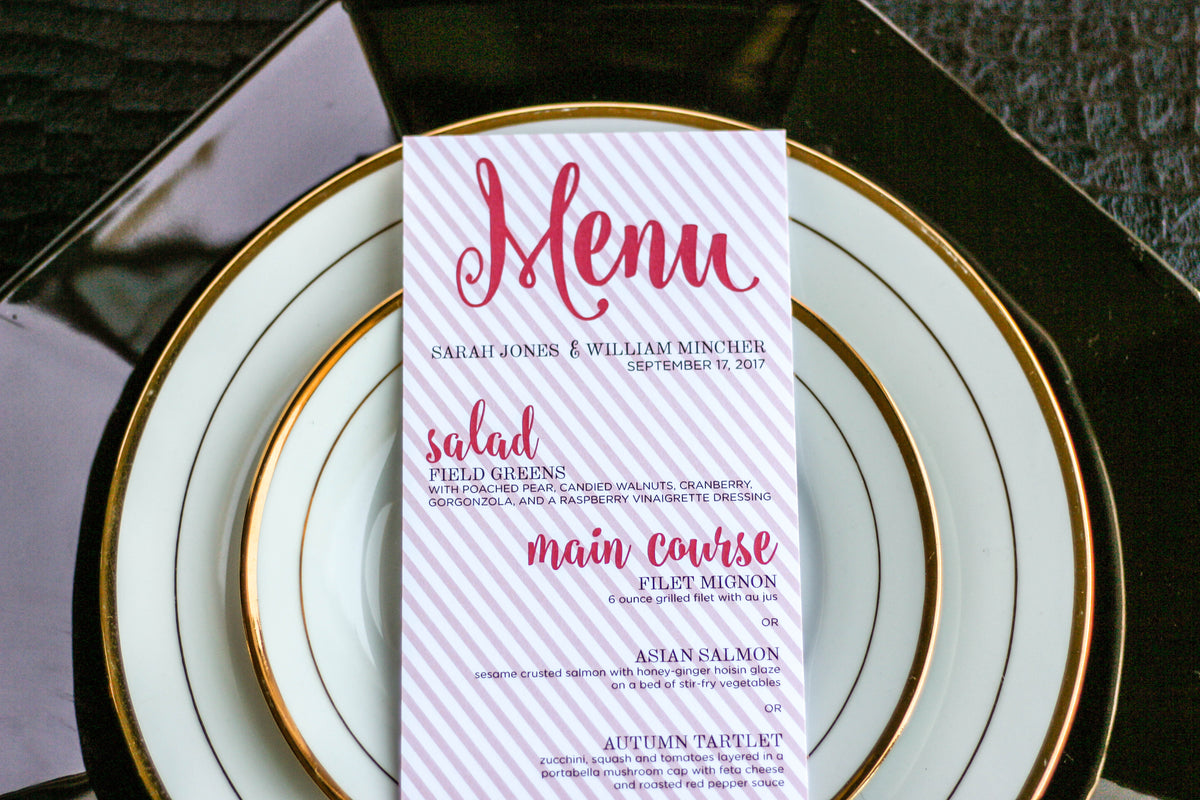 Menu
SARAH JONES & WILLIAM MINCHER
SEPTEMBER 17, 2017
salad
FIELD GREENS
WITH POACHED PEAR, CANDIED WALNUTS, CRANBERRY,
GORGONZOLA, AND A RASPBERRY VINAIGRETTE DRESSING
main course
FILET MIGNON
6 ounce grilled filet with au jus
OR
ASIAN SALMON
sesame crusted salmon with honey-ginger hoisin glaze
on a bed of stir-fry vegetables
OR
AUTUMN TARTLET
zucchini, squash and tomatoes layered in a
portabella mushroom cap with feta cheese
and roasted red pepper sauce